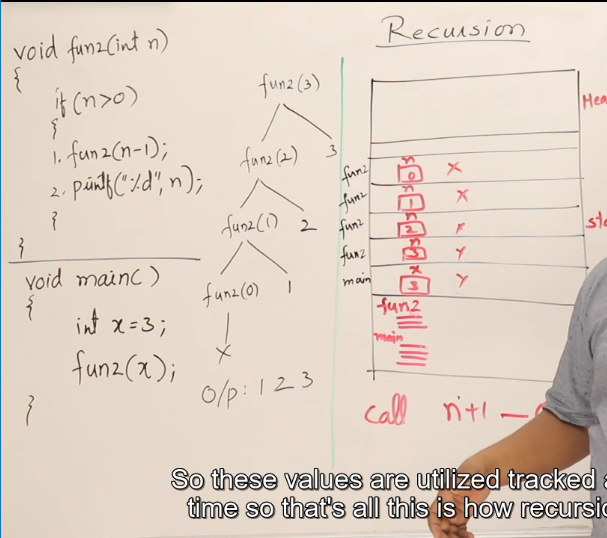 Recursion
void fun2(int n)
{
if (n>0)
{
1. fun2(n-1);
2. printf("%d", n);
}
}
void main()
{
int x=3;
fun2(x);
}
fun2(3)
fun2(2) 3
fun2(1) 2
fun2(0) 1
X
O/p: 1 2 3
n
fun2 0 X
n
fun2 1 X
n
fun2 2 X
n
fun2 3 Y
x
main 3 Y
fun2
main
call n+1
So these values are utilized tracked
time so that's all this is how